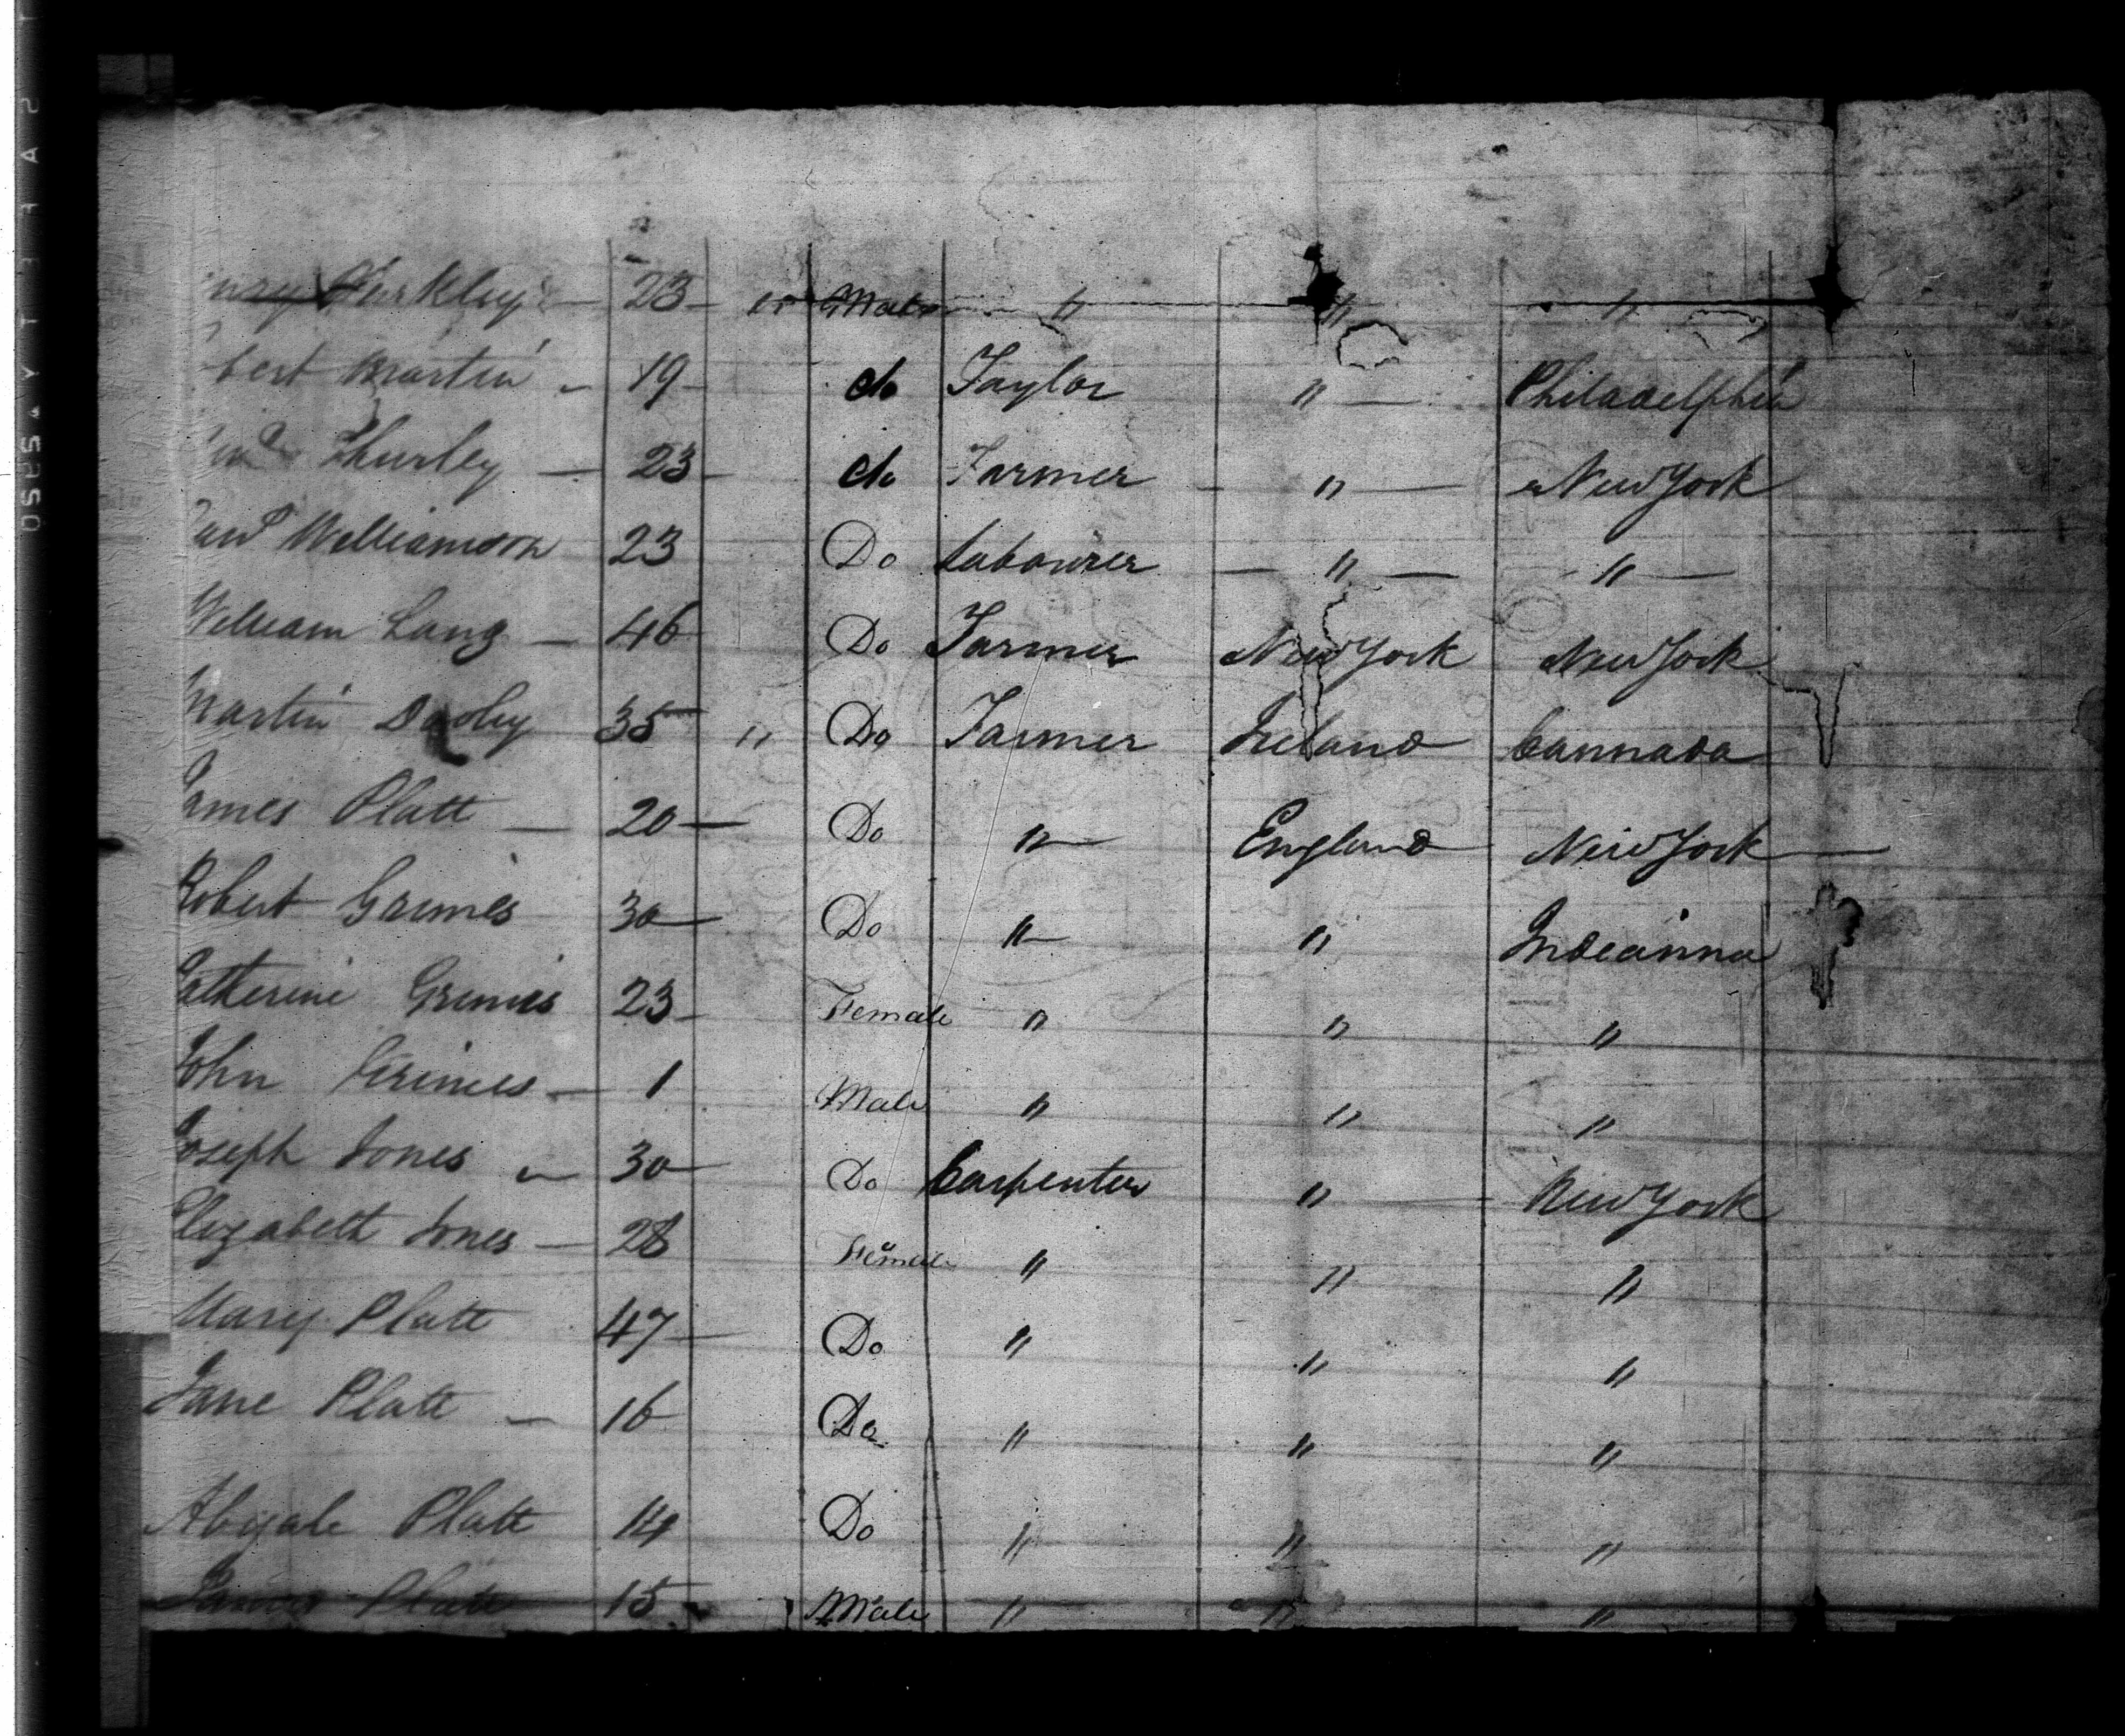 23 " Male " " "
Martin 19 do Taylor " Philadelphia
Thurley 23 do Farmer " New York
Williamson 23 Do Labourer " "
William Lang 46 Do Farmer New York New York
Martin 35 " Do Farmer Ireland Cannada
James Platt 20 Do " England New York
Robert Grimes 30 Do " " Indeanna
Catherine Grimes 23 Female " " "
John Grimes 1 Male " " "
Joseph Jones 30 Do Carpenter " New York
Elizabeth Jones 28 Female " " "
Mary Platt 47 Do " " "
Jane Platt 16 Do " " "
Abigale Platt 14 Do " " "
Platt 15 Male " " "